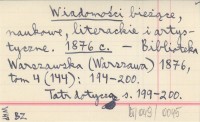 Wiadomości bieżące,
naukowe, literackie i artys-
tyczne. 1876 r. — Biblioteka
Warszawska (Warszawa) 1876,
tom 4 (144): 194-200.
Tatr dotyczą s. 199-200.
BZ